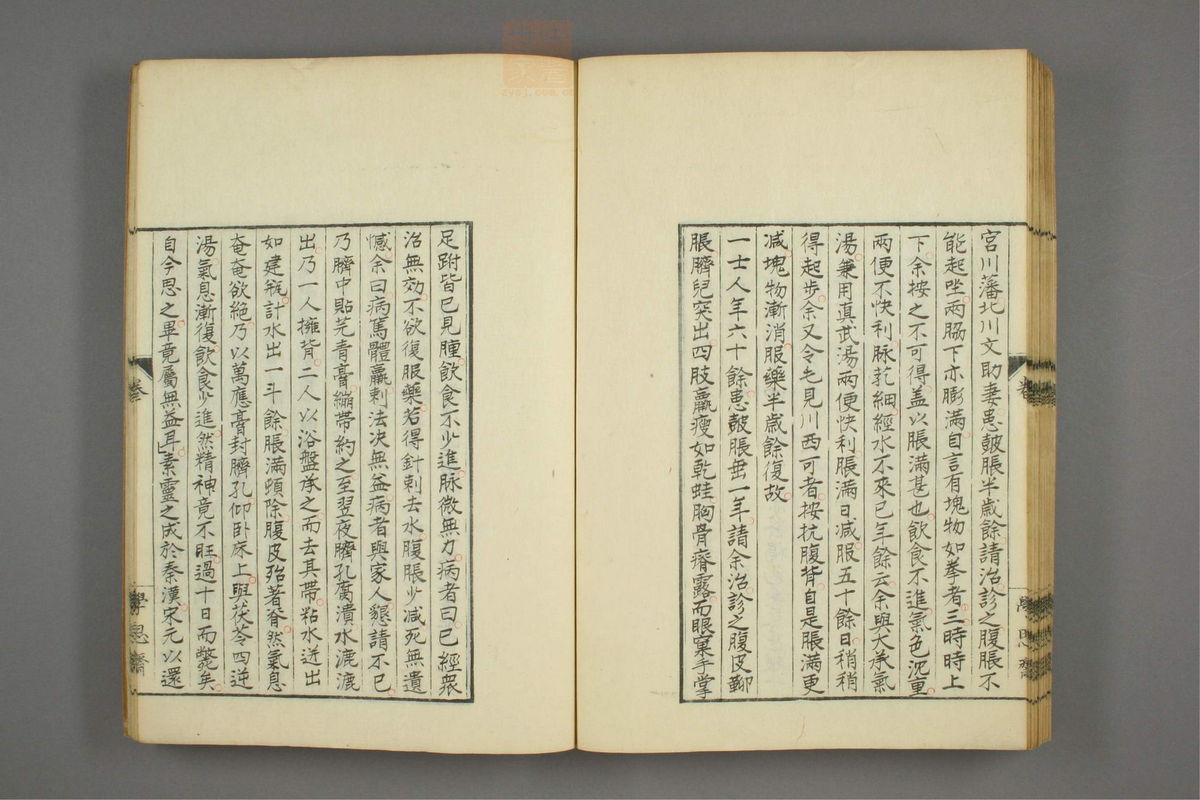 宮川藩北川文助妻患皷脹半歲餘請治診之腹脹不
能起坐兩脇下亦膨滿自言有塊物如拳者三時時上
下余按之不可得蓋以脹滿甚也飲食不進氣色沉重
兩便不快利脉芤細經水不來已年餘云余與大承氣
湯兼用真武湯兩便快利脹滿日減服五十餘日稍稍
得起步余又令乞見川西可者按抗腹背自是脹滿更
減塊物漸消服藥半歲餘復故
一士人年六十餘患皷脹無一年請余治診之腹皮
脹臍兒突出四肢羸瘦如乾蛙胸骨瘠露而眼窠手掌
足跗皆已見腫飲食不少進脉微無力病者曰已經衆
治無効不欲復服藥若得針刺去水腹脹少減死無遺
憾余曰病篤體羸刺法決無益病者與家人懇請不已
乃臍中貼芫青膏繃帶約之至翌夜臍孔腐潰水漉漉
出乃一人擁背二人以浴盤承之而去其帶粘水迸出
如建瓶計水出一斗餘脹滿頓除腹皮殆著脊然氣息
奄奄欲絕乃以萬應膏封臍孔仰卧床上與茯苓四逆
湯氣息漸復飲食少進然精神竟不旺過十日而斃矣
自今思之畢竟屬無益耳素靈之成於秦漢宋元以還
卷
學思齋